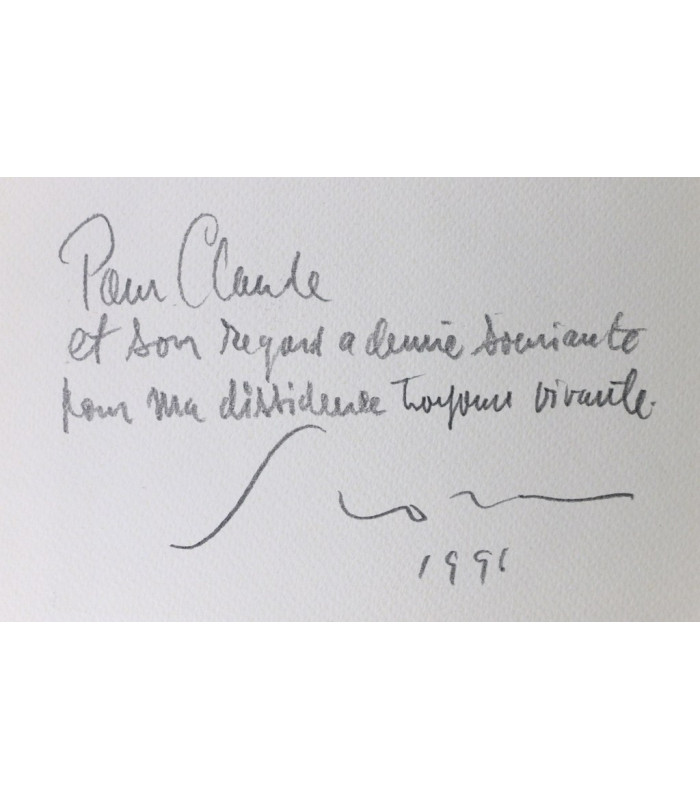 Pour Claude
et son regard a demie souriante
pour ma dissidence toujours vivante.
1991